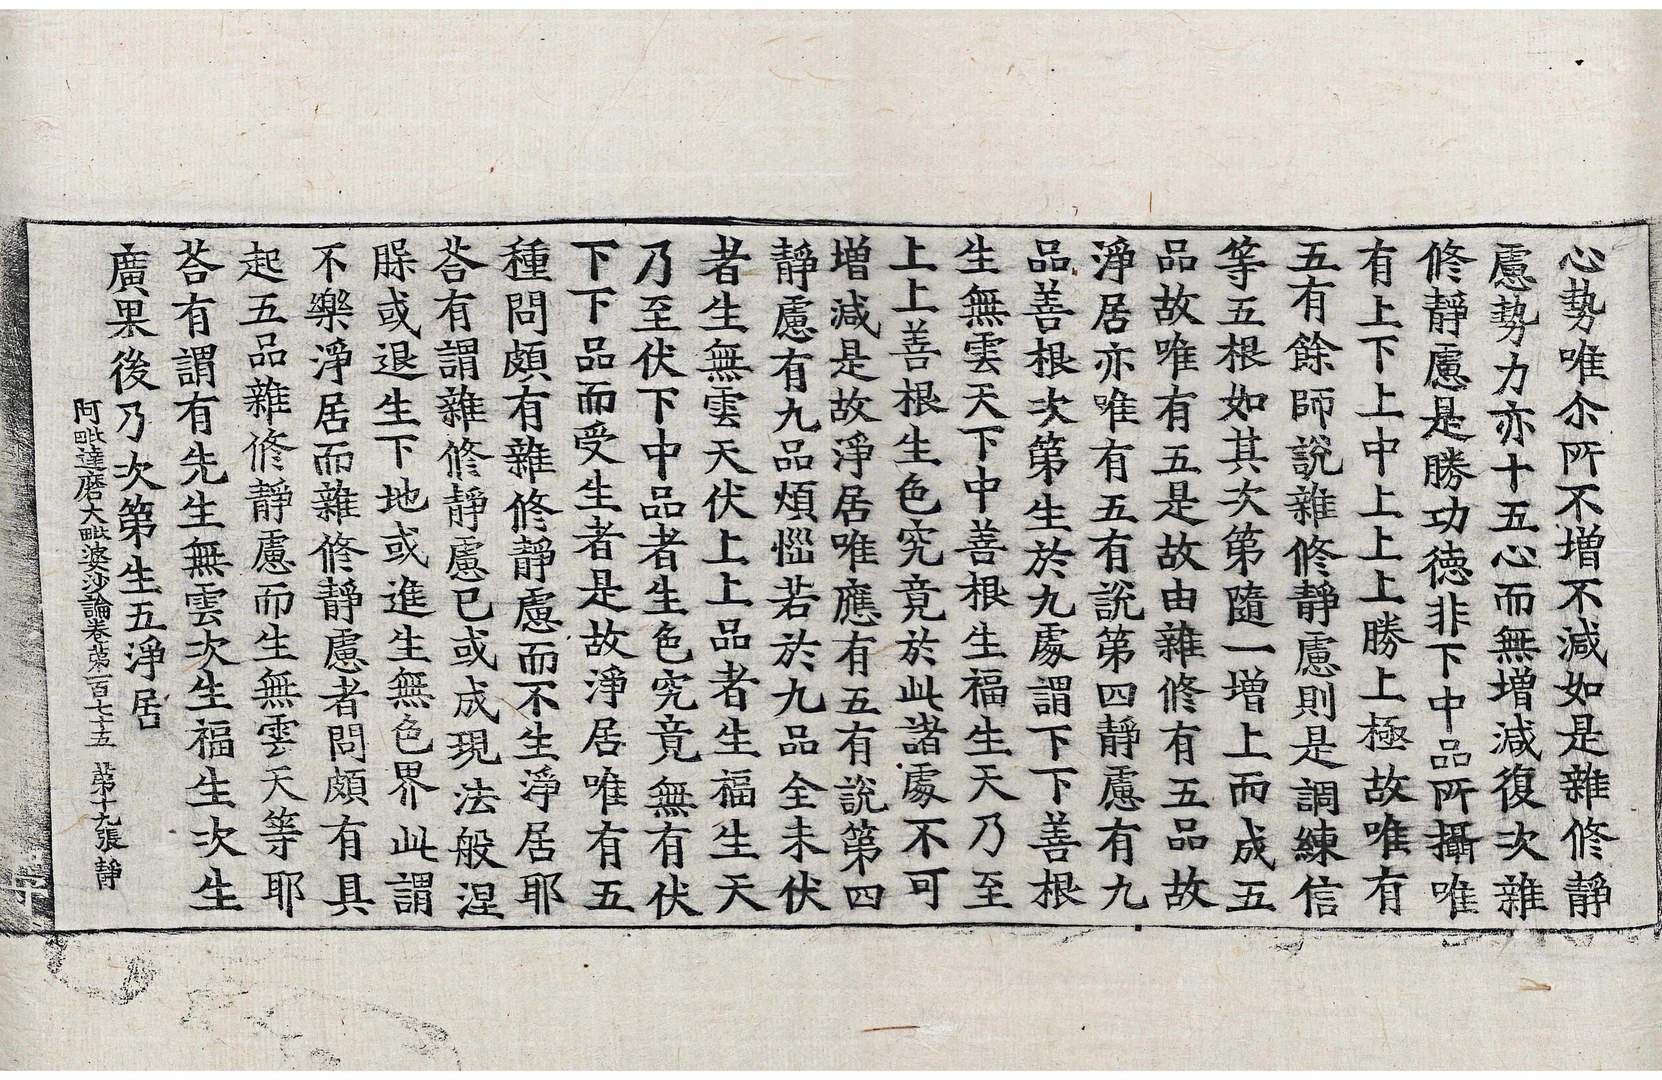 心勢唯尒所不增不減如是雜修靜
慮勢力亦十五心而無增減復次雜
修靜慮是勝功德非下中品所攝唯
有上下上中上上上勝上極故唯有
五有餘師說雜修靜慮則是調練信
等五根如其次第隨一增上而成五
品故唯有五是故由雜修有五品故
淨居亦唯有五有說第四靜慮有九
品善根次第生於九處謂下下善根
生無雲天下中善根生福生天乃至
上上善根生色究竟於此諸處不可
增減是故淨居唯應有五有說第四
靜慮有九品煩惱若於九品全未伏
者生無雲天伏上上品者生福生天
乃至伏下中品者生色究竟無有伏
下下品而受生者是故淨居唯有五
種問頗有雜修靜慮而不生淨居耶
荅有謂雜修靜慮已或成現法般涅
槃或退生下地或進生無色界此謂
不樂淨居而雜修靜慮者問頗有具
起五品雜修靜慮而生無雲天等耶
荅有謂有先生無雲次生福生次生
廣果後乃次第生五淨居
阿毗達磨大毗婆沙論卷第一百七十五 第十九張 靜